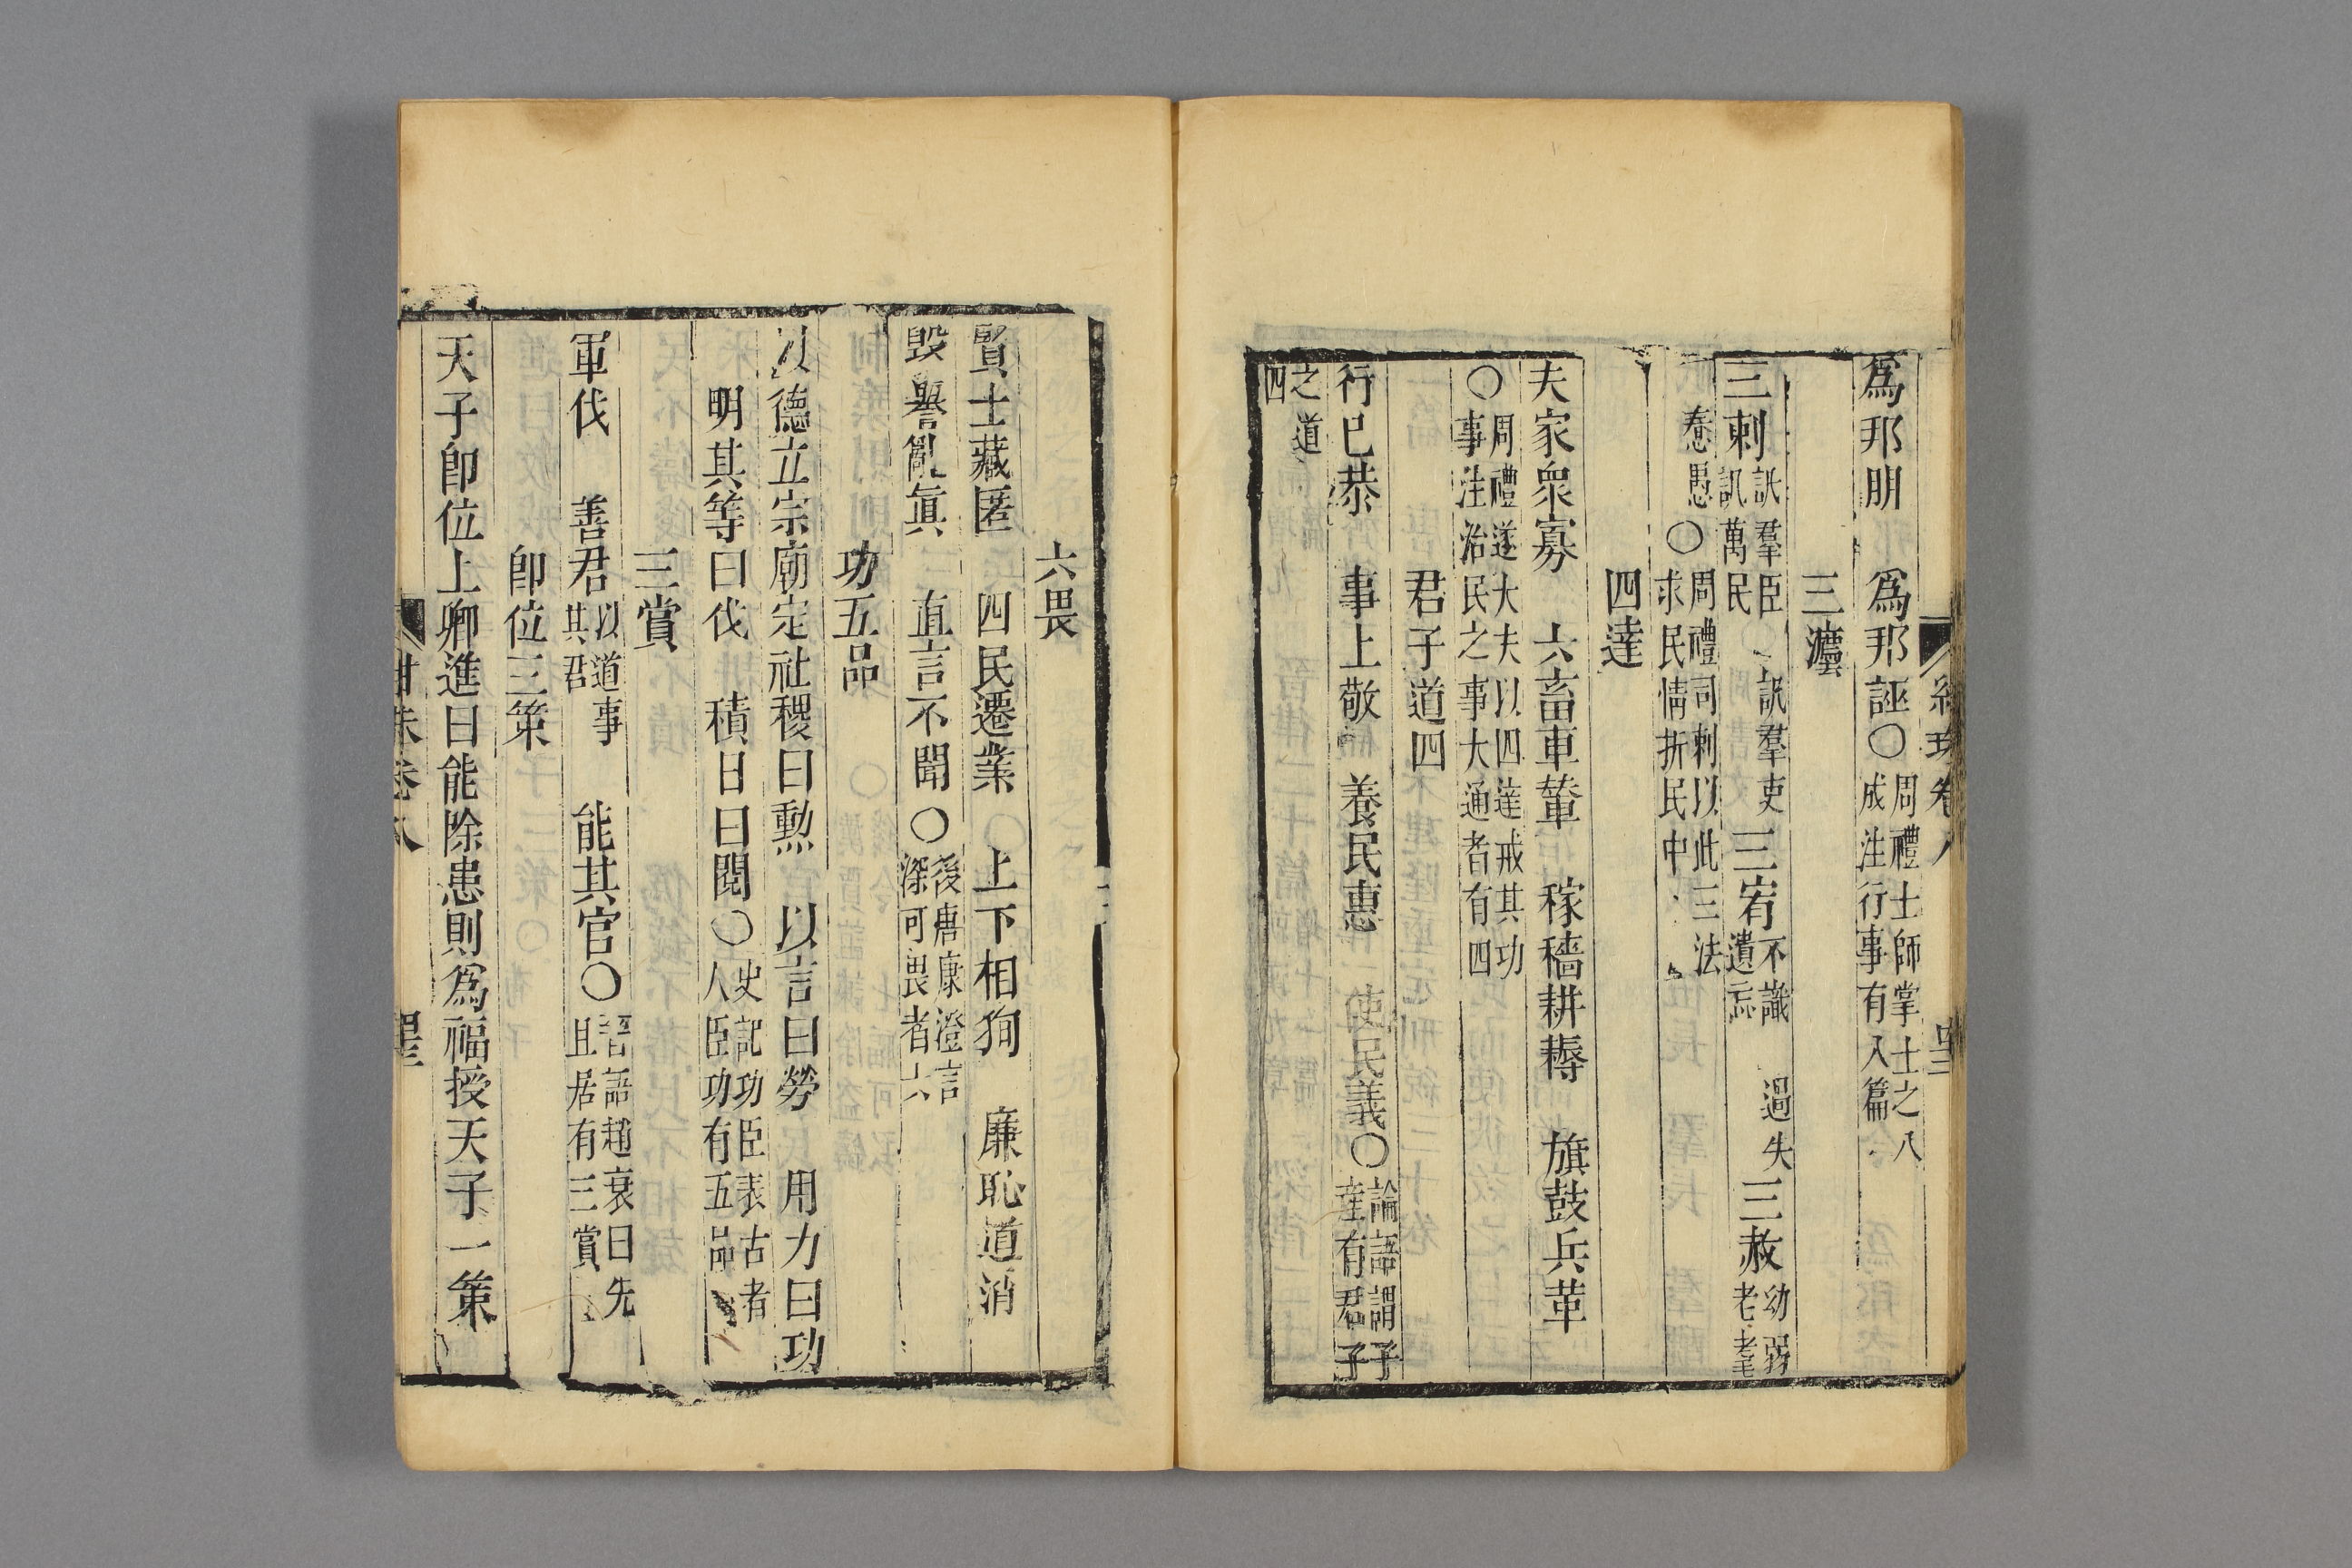 爲邦朋　爲邦誣○周禮士師掌士之八成注行事有入篇
三灋
三刺訊羣臣　訊羣吏　訊萬民　三宥不識　過失　遺忘　三赦幼弱　老耄
惷愚○周禮司刺以此三法求民情折民中
四達
夫家衆寡　六畜車輦　稼穡耕耨　旗鼓兵革
○周禮遂大夫以四達戒其功事注治民之事大通者有四
君子道四
行已恭　事上敬　養民惠　使民義○論語謂子産有君子
之道四
六畏
賢士藏匿　四民遷業　上下相狥　廉恥道消
毀譽亂眞　直言不聞○後唐康澄言深可畏者六
功五品
以德立宗廟定社稷曰勲　以言曰勞　用力曰功
明其等曰伐　積日曰閱○史記功臣表古者人臣功有五品
三賞
軍伐　善君以道事其君　能其官○晉語趙衰曰先且居有三賞
卽位三策
天子卽位上卿進曰能除患則爲福授天子一策